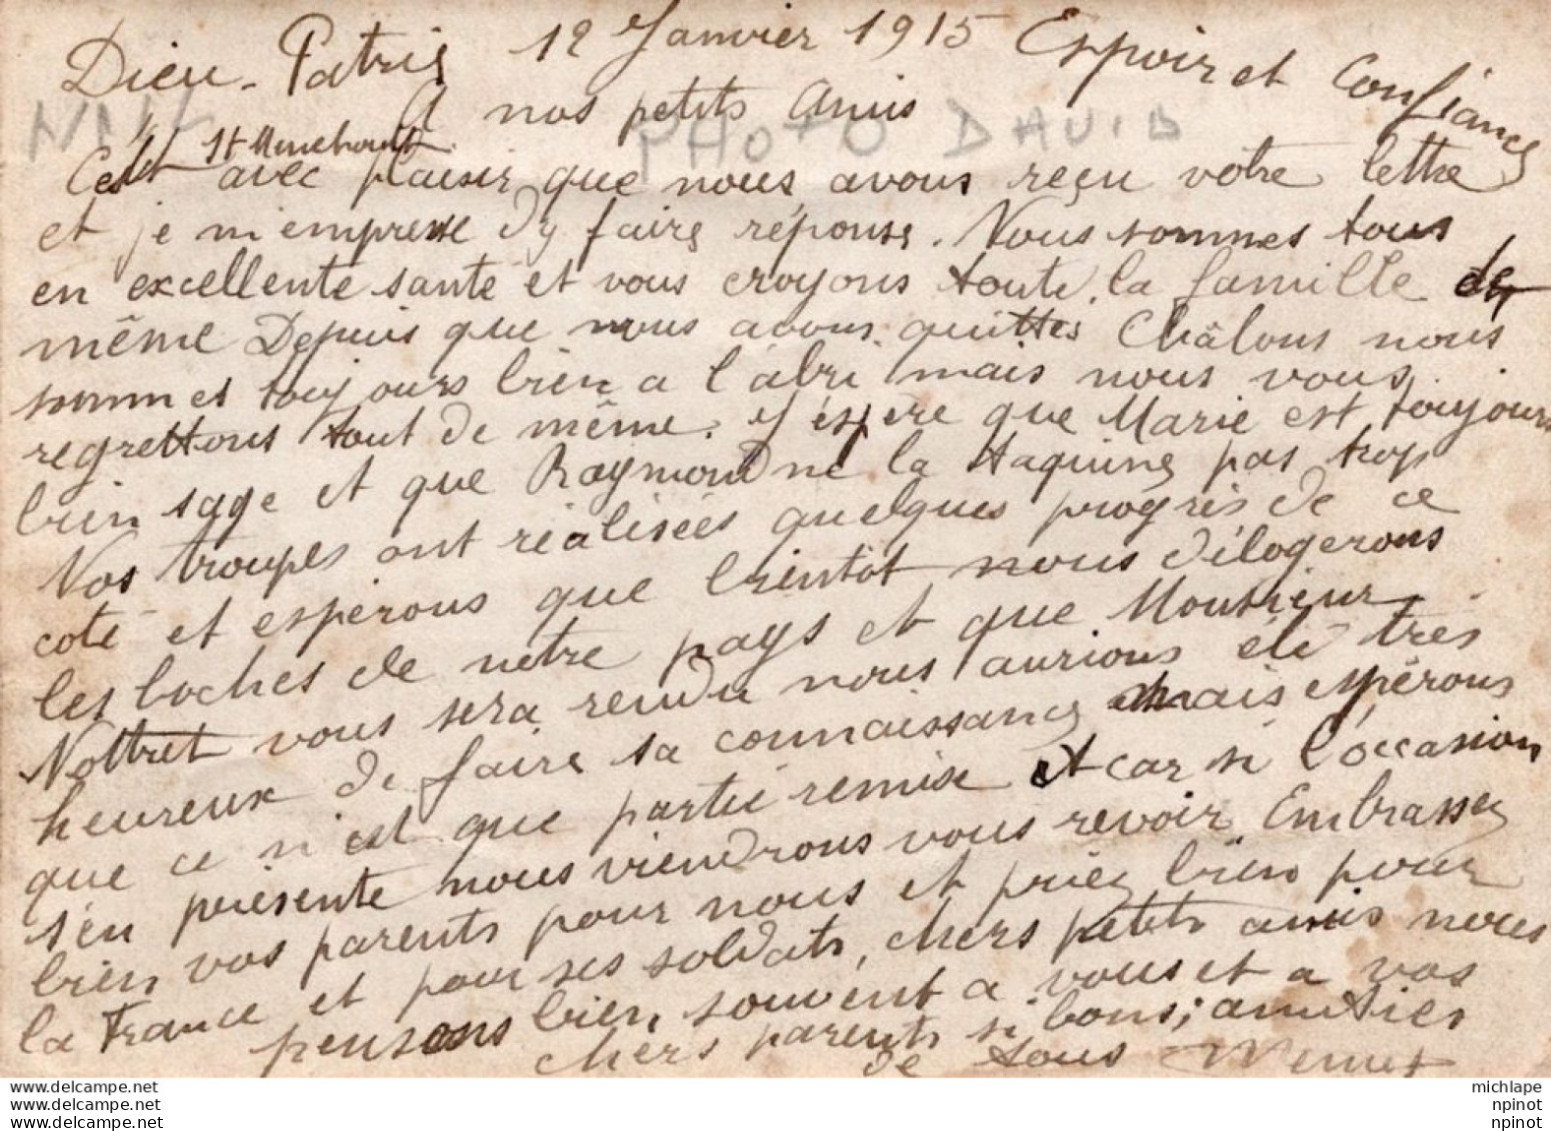 Dieu - Patrie 12 Janvier 1915 Espoir et Confiance
A nos petits Amis
PHOTO DAVID
St Menehoult
C'est avec plaisir que nous avons reçu votre lettre
et je m'empresse d'y faire réponse. Nous sommes tous
en excellente santé et vous croyons toute la famille de
même Depuis que nous avons quittés Châlons nous
sommes toujours bien a l'abri mais nous vous
regrettons tout de même. J'éspère que Marie est toujours
bien sage et que Raymond ne la taquine pas trop
Nos troupes ont réalisées quelques progrès de ce
coté et espérons que bientôt nous délogerons
les boches de notre pays et que Monsieur
Nottret vous sera rendu nous aurions été très
heureux de faire sa connaissance mais espérons
que ce n'est que partie remise et car si l'occasion
s'en présente nous viendrons vous revoir. Embrassez
bien vos parents pour nous et priez bien pour
la France et pour ses soldats, chers petits amis nous
pensons bien souvent a vous et a vos
chers parents si bons; amitiés
de tous
michlape
npinot
npinot
www.delcampe.net
www.delcampe.net
www.delcampe.net